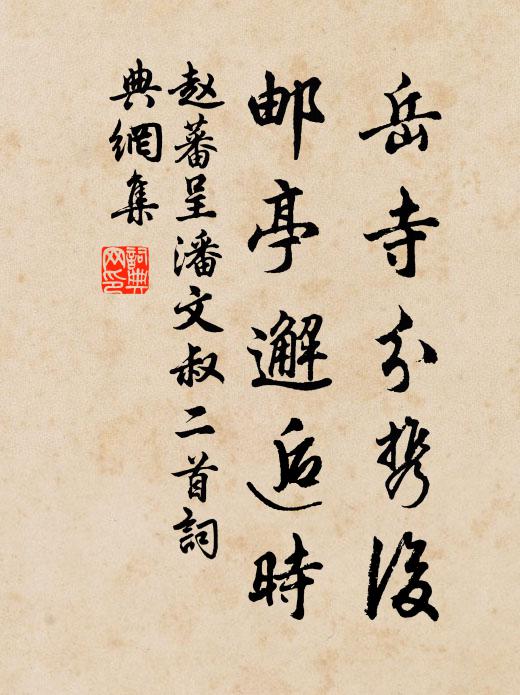 岳寺分携後
邮亭邂逅時
赵蕃呈潘文叔二首詞
典網集
詞典
网印